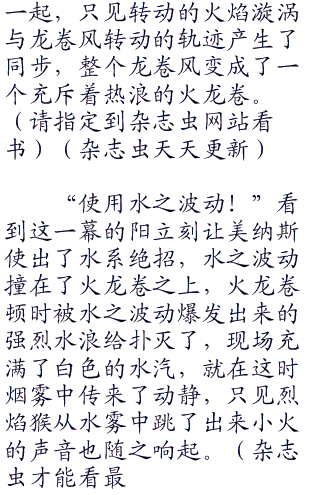 一起，只见转动的火焰漩涡
与龙卷风转动的轨迹产生了
同步，整个龙卷风变成了一
个充斥着热浪的火龙卷。
（请指定到杂志虫网站看
书）（杂志虫天天更新）
“使用水之波动！”看
到这一幕的阳立刻让美纳斯
使出了水系绝招，水之波动
撞在了火龙卷之上，火龙卷
顿时被水之波动爆发出来的
强烈水浪给扑灭了，现场充
满了白色的水汽，就在这时
烟雾中传来了动静，只见烈
焰猴从水雾中跳了出来小火
的声音也随之响起。（杂志
虫才能看最